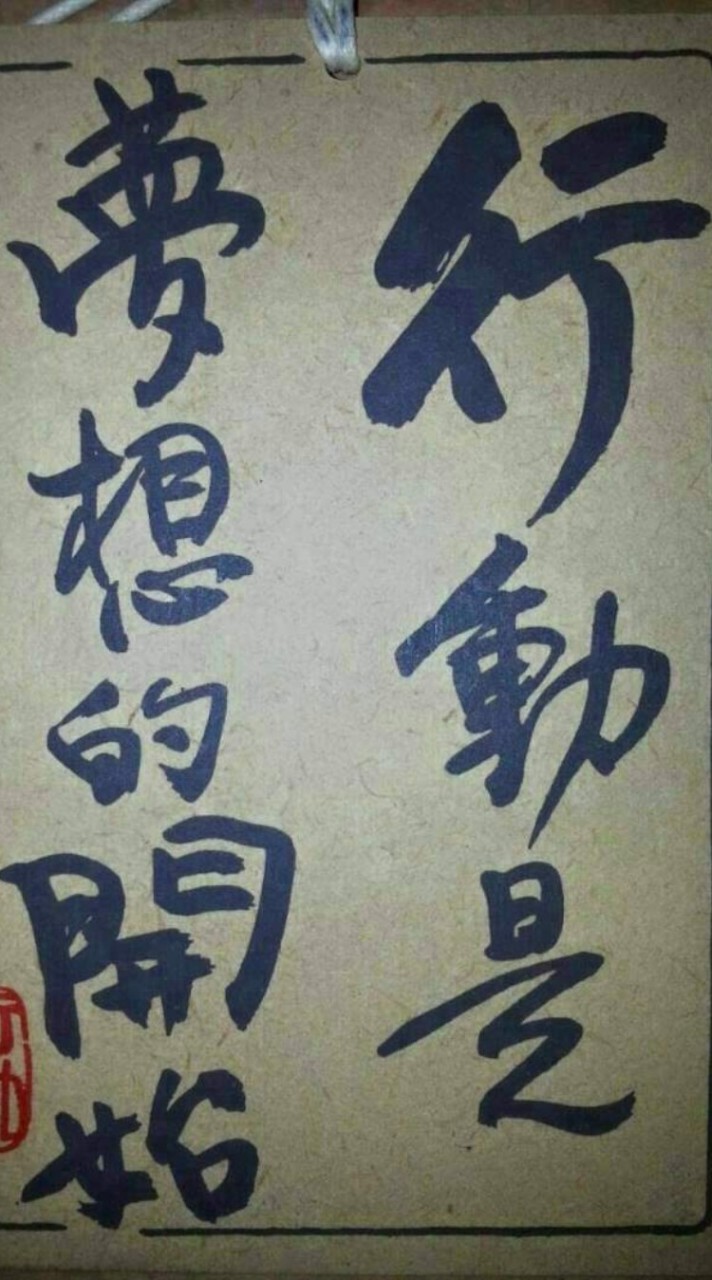 行動是
夢想的開始